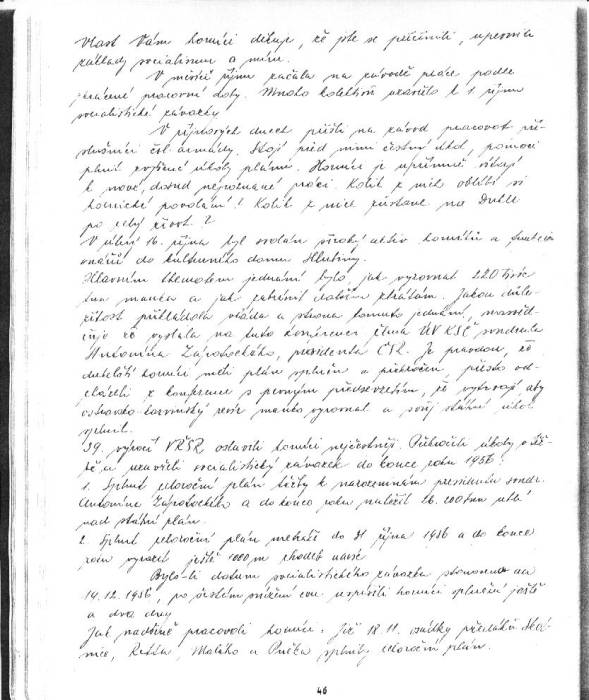 Vlast Vám horníci děkuje, že jste se přičinili, upevnili
základy socialismu a míru.
V měsíci říjnu začala na závodě práce podle
zkrácené pracovní doby. Mnoho kolektivů uzavřelo k 1. říjnu
socialistické závazky.
V říjnových dnech přišli na závod pracovat pří-
slušníci čsl. armády. Stojí před nimi čestný úkol, pomoci
plnit zvýšené úkoly plánu. Horníci je upřímně vítají
k nové, dosud nepoznané práci. Kolik z nich oblíbí si
hornické povolání! Kolik z nich zůstane na Dukle
po celý život?
V úterý 16. října byl svolán široký aktiv horníků a funkcio
nářů do kulturního domu Hlubiny.
Hlavním thematem jednání bylo jak vyrovnat 220 tisíc
tun manka a jak zabránit dalším ztrátám. Jakou důle-
žitost přikládala vláda a strana tomuto jednání, nasvěd-
čuje že vyslala na tuto konferenci člena ÚV KSČ soudruha
Antonína Zápotockého, presidenta ČSR. Je pravdou, že
dukelští horníci měli plán splněn a překročen, přesto od-
cházeli z konference s pevným předsevzetím, že vytrvají, aby
ostravsko karvinský revír manko vyrovnal a svůj státní úkol
splnil.
39. výročí VŘSR oslavili horníci nejčestněji. Překročili úkoly v těž-
bě a uzavřeli socialistický závazek do konce roku 1956:
1. Splnit celoroční plán těžby k narozeninám presidenta soudr.
Antonína Zápotockého a do konce roku naložit 26.200 tun uhlí
nad státní plán.
2. Splnit celoroční plán metráže do 31 října 1956 a do konce
roku vyrazit ještě 1000 m chodeb navíc
Bylo-li datum socialistického závazku stanoveno na
14.12.1956, po čestném snížení cen uspíšili horníci splnění ještě
o dva dny
Jak nadšeně pracovali horníci. Již 18.11. osádky předáků
Maléko a splnily celoroční plán.
46